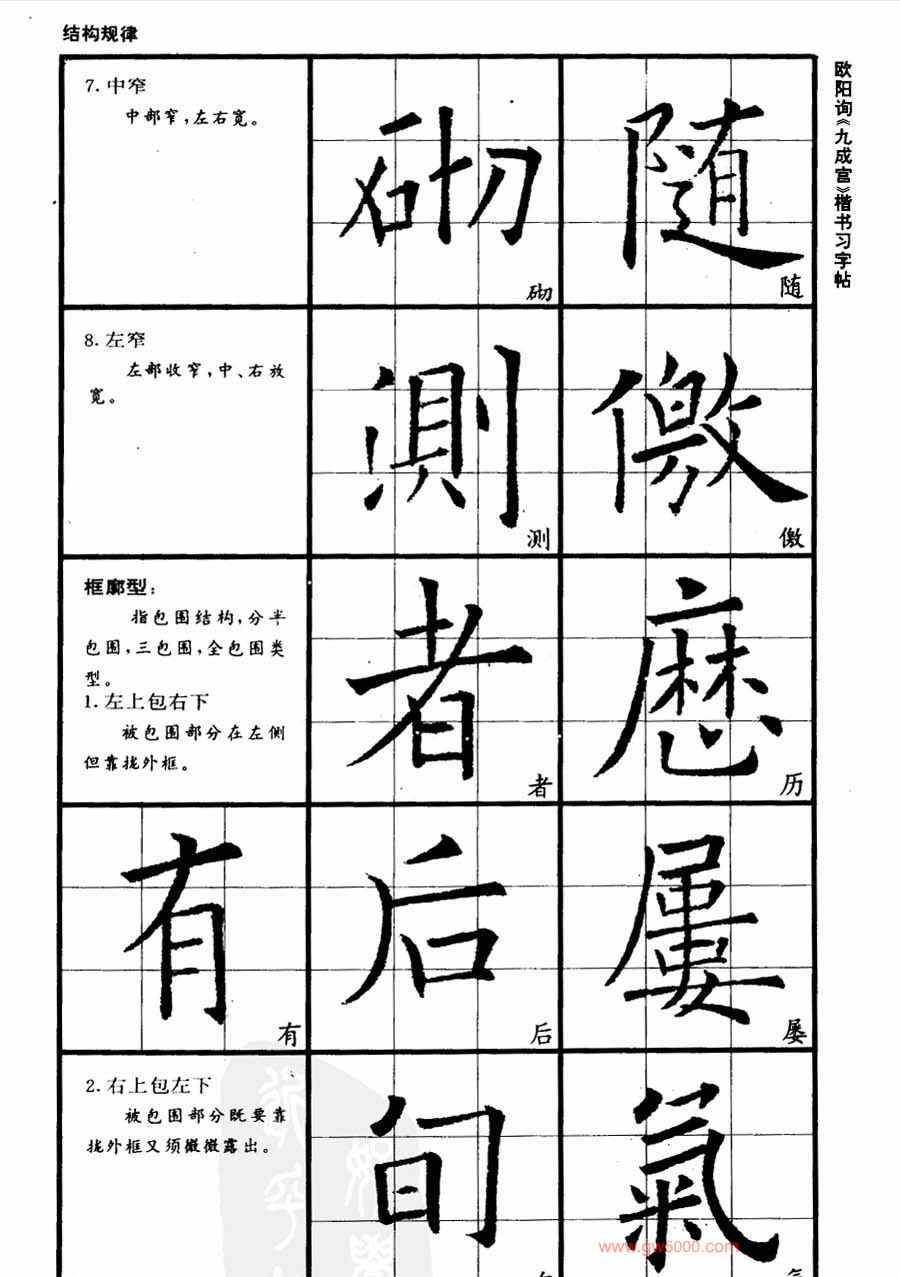 结构规律
欧阳询《九成宫》楷书习字帖
7.中窄
中部窄,左右宽。
砌
砌
隨
随
8.左窄
左部收窄,中、右放
宽。
測
测
儌
儌
框廓型:
指包围结构,分半
包围,三包围,全包围类
型。
1.左上包右下
被包围部分在左侧
但靠拢外框。
者
者
历
有
有
后
后
屢
屡
2.右上包左下
被包围部分既要靠
拢外框又须微微露出。
旬
氣
www.gw5000.com